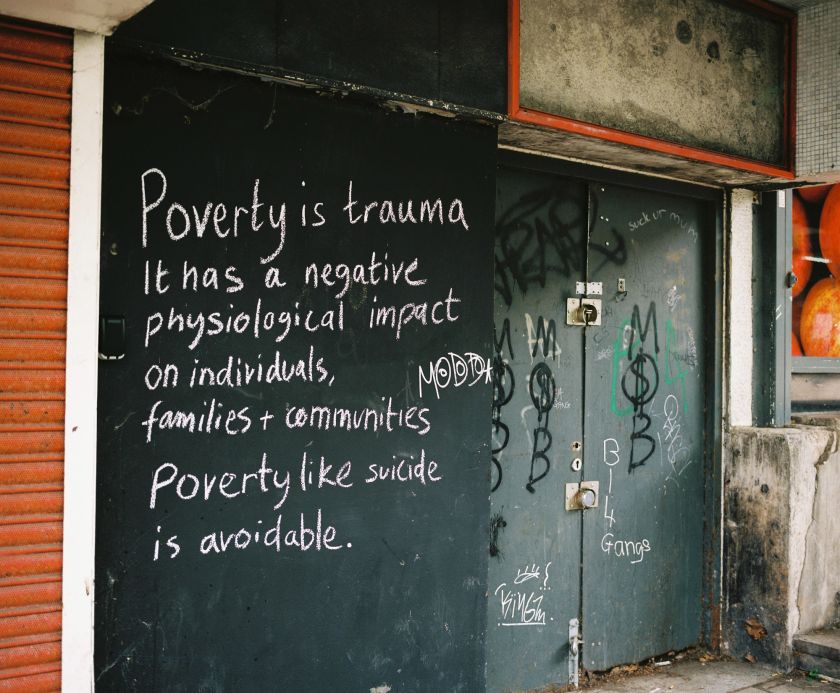 Poverty is trauma
It has a negative
physiological impact
on individuals,
families + communities
Poverty like suicide
is avoidable.
suck ur mum
B14
Gangs
KINGZ